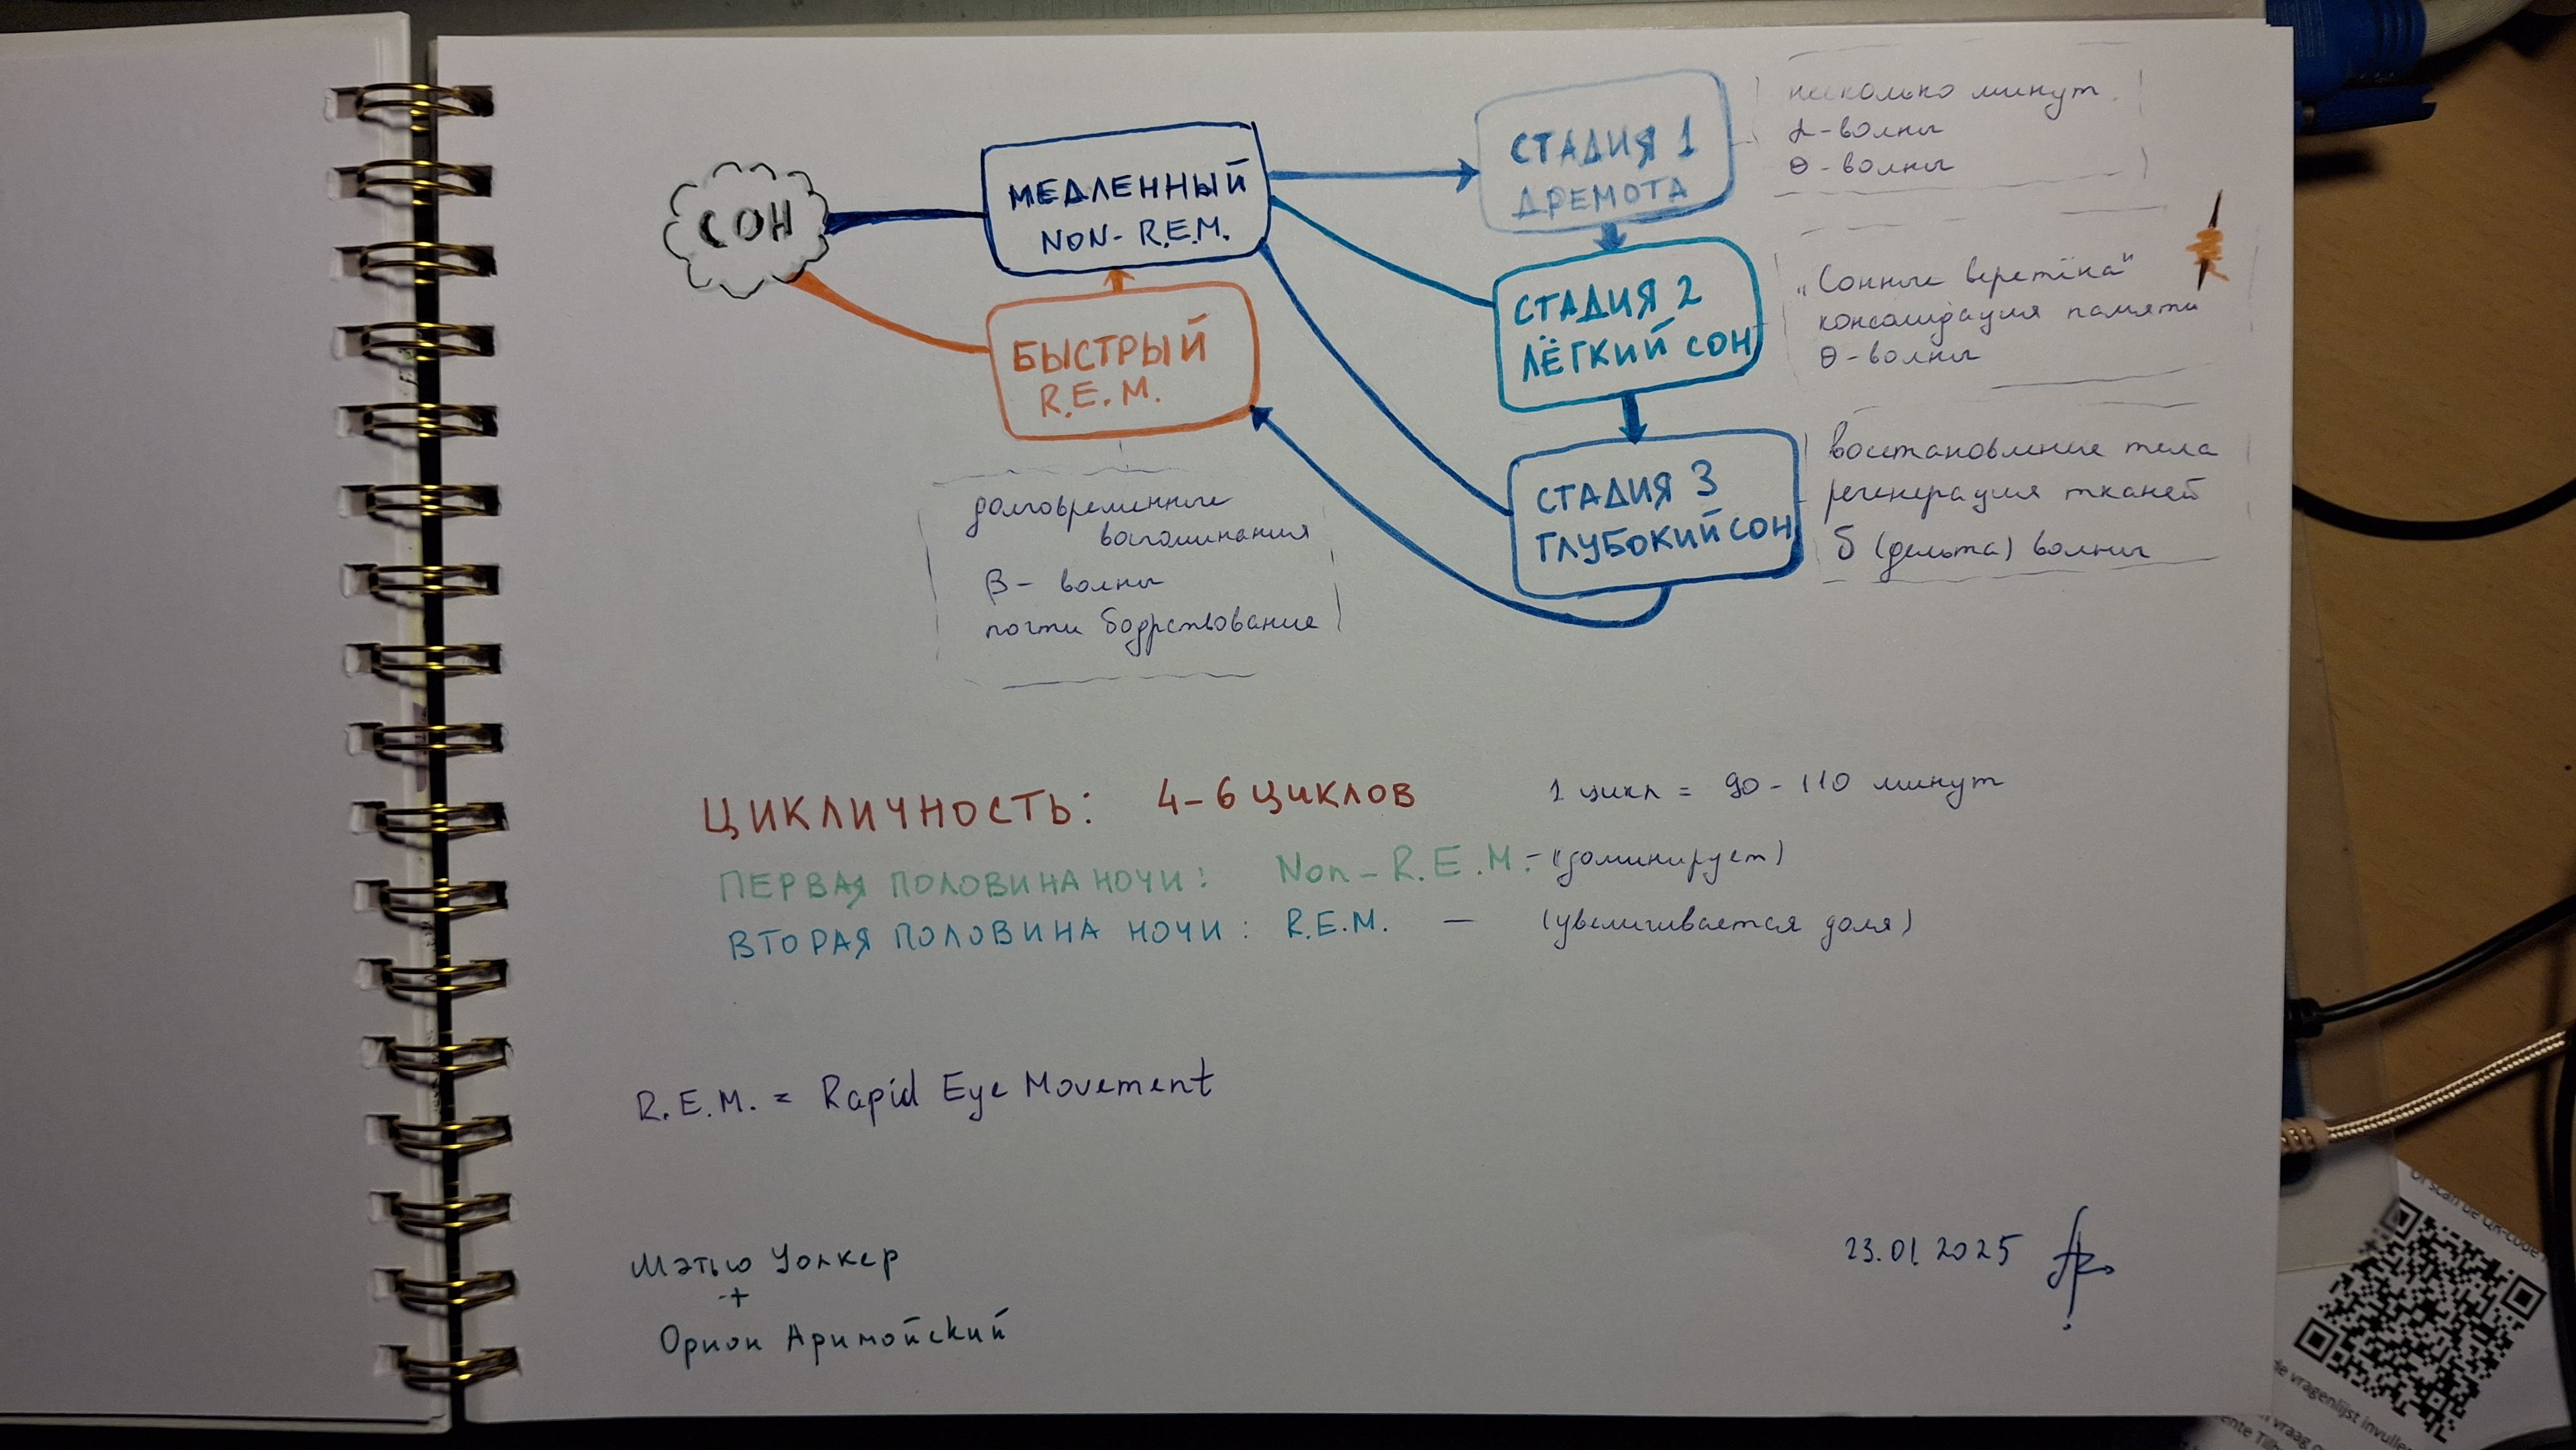 СОН
МЕДЛЕННЫЙ
NON-R.E.M.
БЫСТРЫЙ
R.E.M.
долговременные
воспоминания
β - волны
почти бодрствование
СТАДИЯ 1
ДРЕМОТА
несколько минут
α-волны
Θ-волны
СТАДИЯ 2
ЛЁГКИЙ СОН
„Сонные веретёна"
консолидация памяти
Θ-волны
СТАДИЯ 3
ГЛУБОКИЙ СОН
восстановление тела
регенерация тканей
δ (дельта) волны
ЦИКЛИЧНОСТЬ: 4-6 ЦИКЛОВ 1 цикл = 90-110 минут
ПЕРВАЯ ПОЛОВИНА НОЧИ: Non-R.E.M. - (доминирует)
ВТОРАЯ ПОЛОВИНА НОЧИ: R.E.M. — (увеличивается доля)
R.E.M. = Rapid Eye Movement
Мэтью Уолкер
+
Орион Аримойский
23.01.2025
QR-code
de vragenlijst invulle